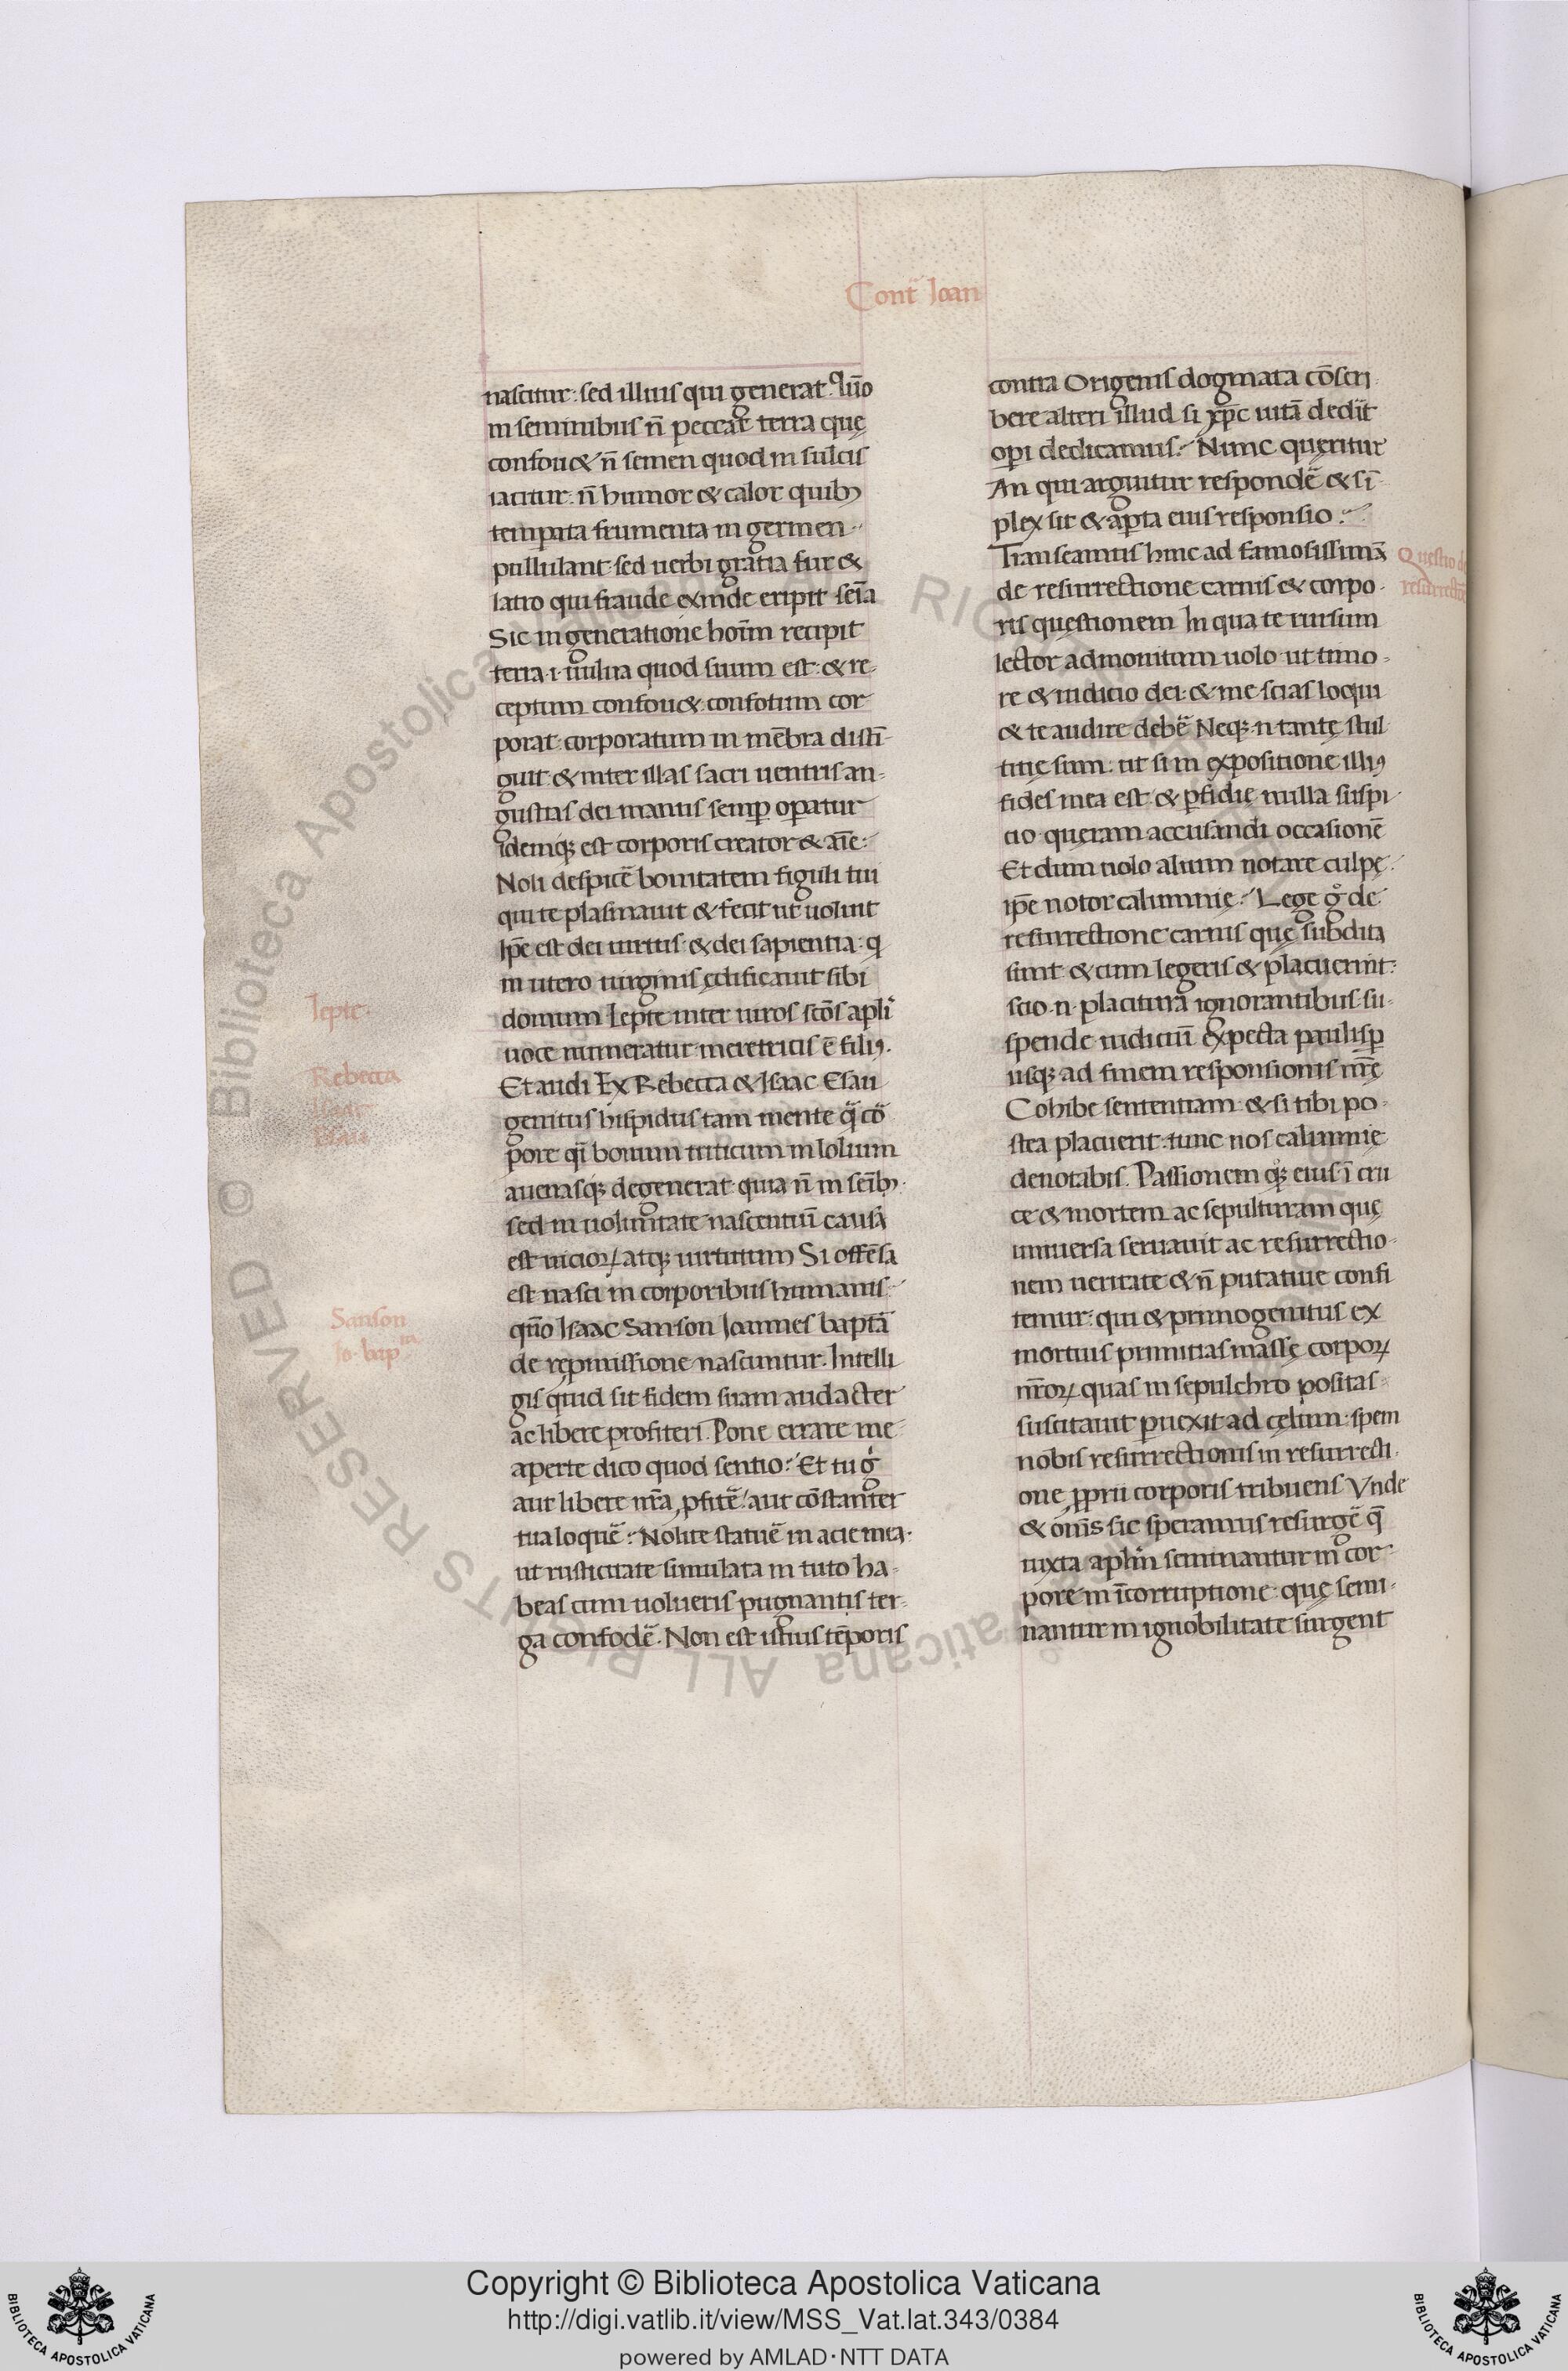 Cont̄ Ioan
nascitur: sed illius qui generat. Quō
in seminibus n̄ peccat terra quę
confou& n̄ semen quod in sulcis
iacitur: n̄ humor & calor quib;
temp̄ata frumenta in germen
pullulant sed uerbi gratia fur &
latro qui fraude exinde eripit sēīa
Sic in generatione hoīm recipit
terra .i. uulua quod suum est: & re-
ceptum confou&: confotum cor
porat: corporatum in mēbra distī-
guit: & inter illas sacri uentris an-
gustias dei manus semp̄ op̄atur
idemq; est corporis creator & aīe:
Noli despicē bonitatem figuli tui
qui te plasmauit & fecit ut uoluit
Ip̄e est dei uirtus & dei sapientia: q
in utero uirginis ędificauit sibi
domum Iepte inter uiros scōs apl̄i
uoce numeratur meretricis ē filiꝰ.
Et audi Ex Rebecca & Isaac Esau
genitus hispidus tam mente q̄ cō
pore qi bonum triticum in lolium
auenasq; degenerat quia n̄ in sēīb;
sed in uoluntate nascentiū causa
est uicioꝝ atq; uirtutum Si offēsa
est nasci in corporibus humanis
qn̄o Isaac Sanson Ioannes baptā
de repmissione nascuntur. Intelli
gis quid sit fidem suam audacter
ac libere profiteri. Pone errare me
aperte dico quod sentio: Et tu g̊
aut libere nr̄a ꝓfitē: aut cōstanter
tua loquē: Nolite statuē in acie mea.
ut rusticitate simulata in tuto ha-
beas cum uolueris pugnantis ter-
ga confodē. Non est istius tēporis
contra Origenis dogmata cōscri
bere alteri illud si xp̄c uitā dedīt
op̄i dedicamus: Nunc quęritur
An qui arguitur respondē & sī-
plex sit & ap̄ta eius responsio:
Transeamus hinc ad famosissimā
de resurrectione carnis & corpo-
ris quęstionem In qua te rursum
lector admonitum uolo ut timo-
re & iudicio dei: & me scias loqui
& te audire debē Neq; .n. tantę stul
titię sum. ut si in expositione illiꝰ
fides mea est & ꝑfidię nulla suspi
cio quęram accusandi occasionē
Et dum uolo alium notare culpę
ip̄e notor calumnię: Lege g̊ de
resurrectione carnis quę subdita
sunt & cum legeris & placuerint:
scio .n. placitura ignorantibus su-
spende iudiciū expecta paulisꝑ
usq; ad finem responsionis nr̄ę
Cohibe sententiam & si tibi po-
stea placuerit: tunc nos calumnię
denotabis. Passionem q; eius ī cru
ce & mortem ac sepulturam quę
uniuersa seruauit ac resurrectio-
nem ueritate & n̄ putatiue confi
temur: qui & primogenitus ex
mortuis primitias massę corpoꝝ
nr̄oꝝ quas in sepulchro positas
suscitauit ꝑuexit ad cęlum: spem
nobis resurrectionis in resurrecti-
one ꝓprii corporis tribuens Vnde
& om̄s sic speramus resurgē q̄
iuxta aplīm seminantur in cor-
pore in īcorruptione: quę semi-
nantur in ignobilitate surgent
Iepte.
Rebecca
Isaac
Esau
Sanson
Io. bap
Questio de
resurrectio
Copyright © Biblioteca Apostolica Vaticana
http://digi.vatlib.it/view/MSS_Vat.lat.343/0384
powered by AMLAD·NTT DATA
BIBLIOTECA APOSTOLICA VATICANA
BIBLIOTECA APOSTOLICA VATICANA
© Biblioteca Apostolica Vaticana ALL RIGHTS RESERVED